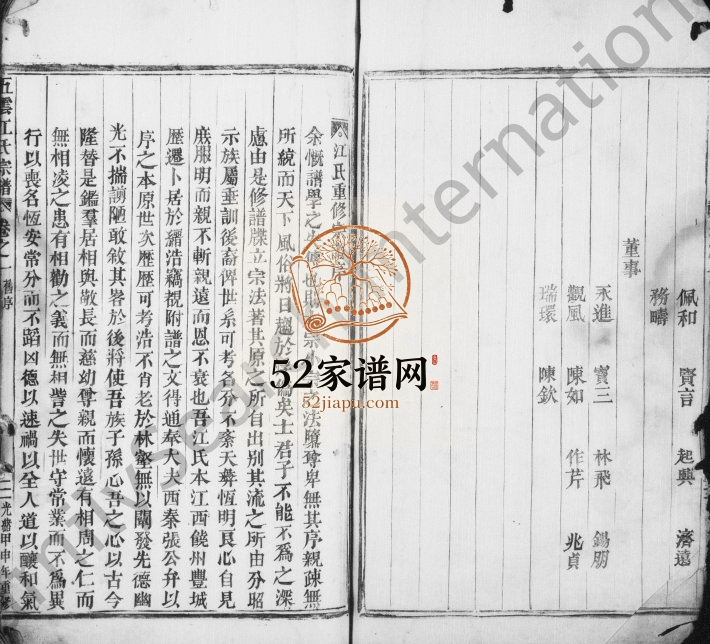 佩和 賢言 起興 濟遠
務疇
董事
永進 寶三 林飛 錫朋
觀風 陳如 作芹 兆貞
瑞環 陳欽
江氏重修
余慨譜學之 法隳尊卑無其序親疎無
所統而天下風俗將日趨於 矣士君子不能不為之深
慮由是修譜牒立宗法著其原之所自出別其流之所由分昭
示族屬垂訓後裔俾世系可考名分不紊天彝恆明良心自見
庶服明而親不斬親遠而恩不衰也吾江氏本江西饒州豐城
歷遷卜居於縉浩竊覩附譜之文得通奉大夫西秦張公弁以
序之本原世次歷歷可考浩不肖老於林壑無以闡發先德幽
光不揣謭陋敢敘其畧於後將使吾族子孫心吾之心以古今
隆替是鑑羣居相與敬長而慈幼尊親而懷遠有相周之仁而
無相凌之患有相勸之義而無相訾之失世守常業而不為異
行以喪名恆安常分而不蹈凶德以速禍以全人道以釀和氣
五雲江氏宗譜 卷之一 舊序 二 光緒甲申年重修
52家谱网
52jiapu.com
International